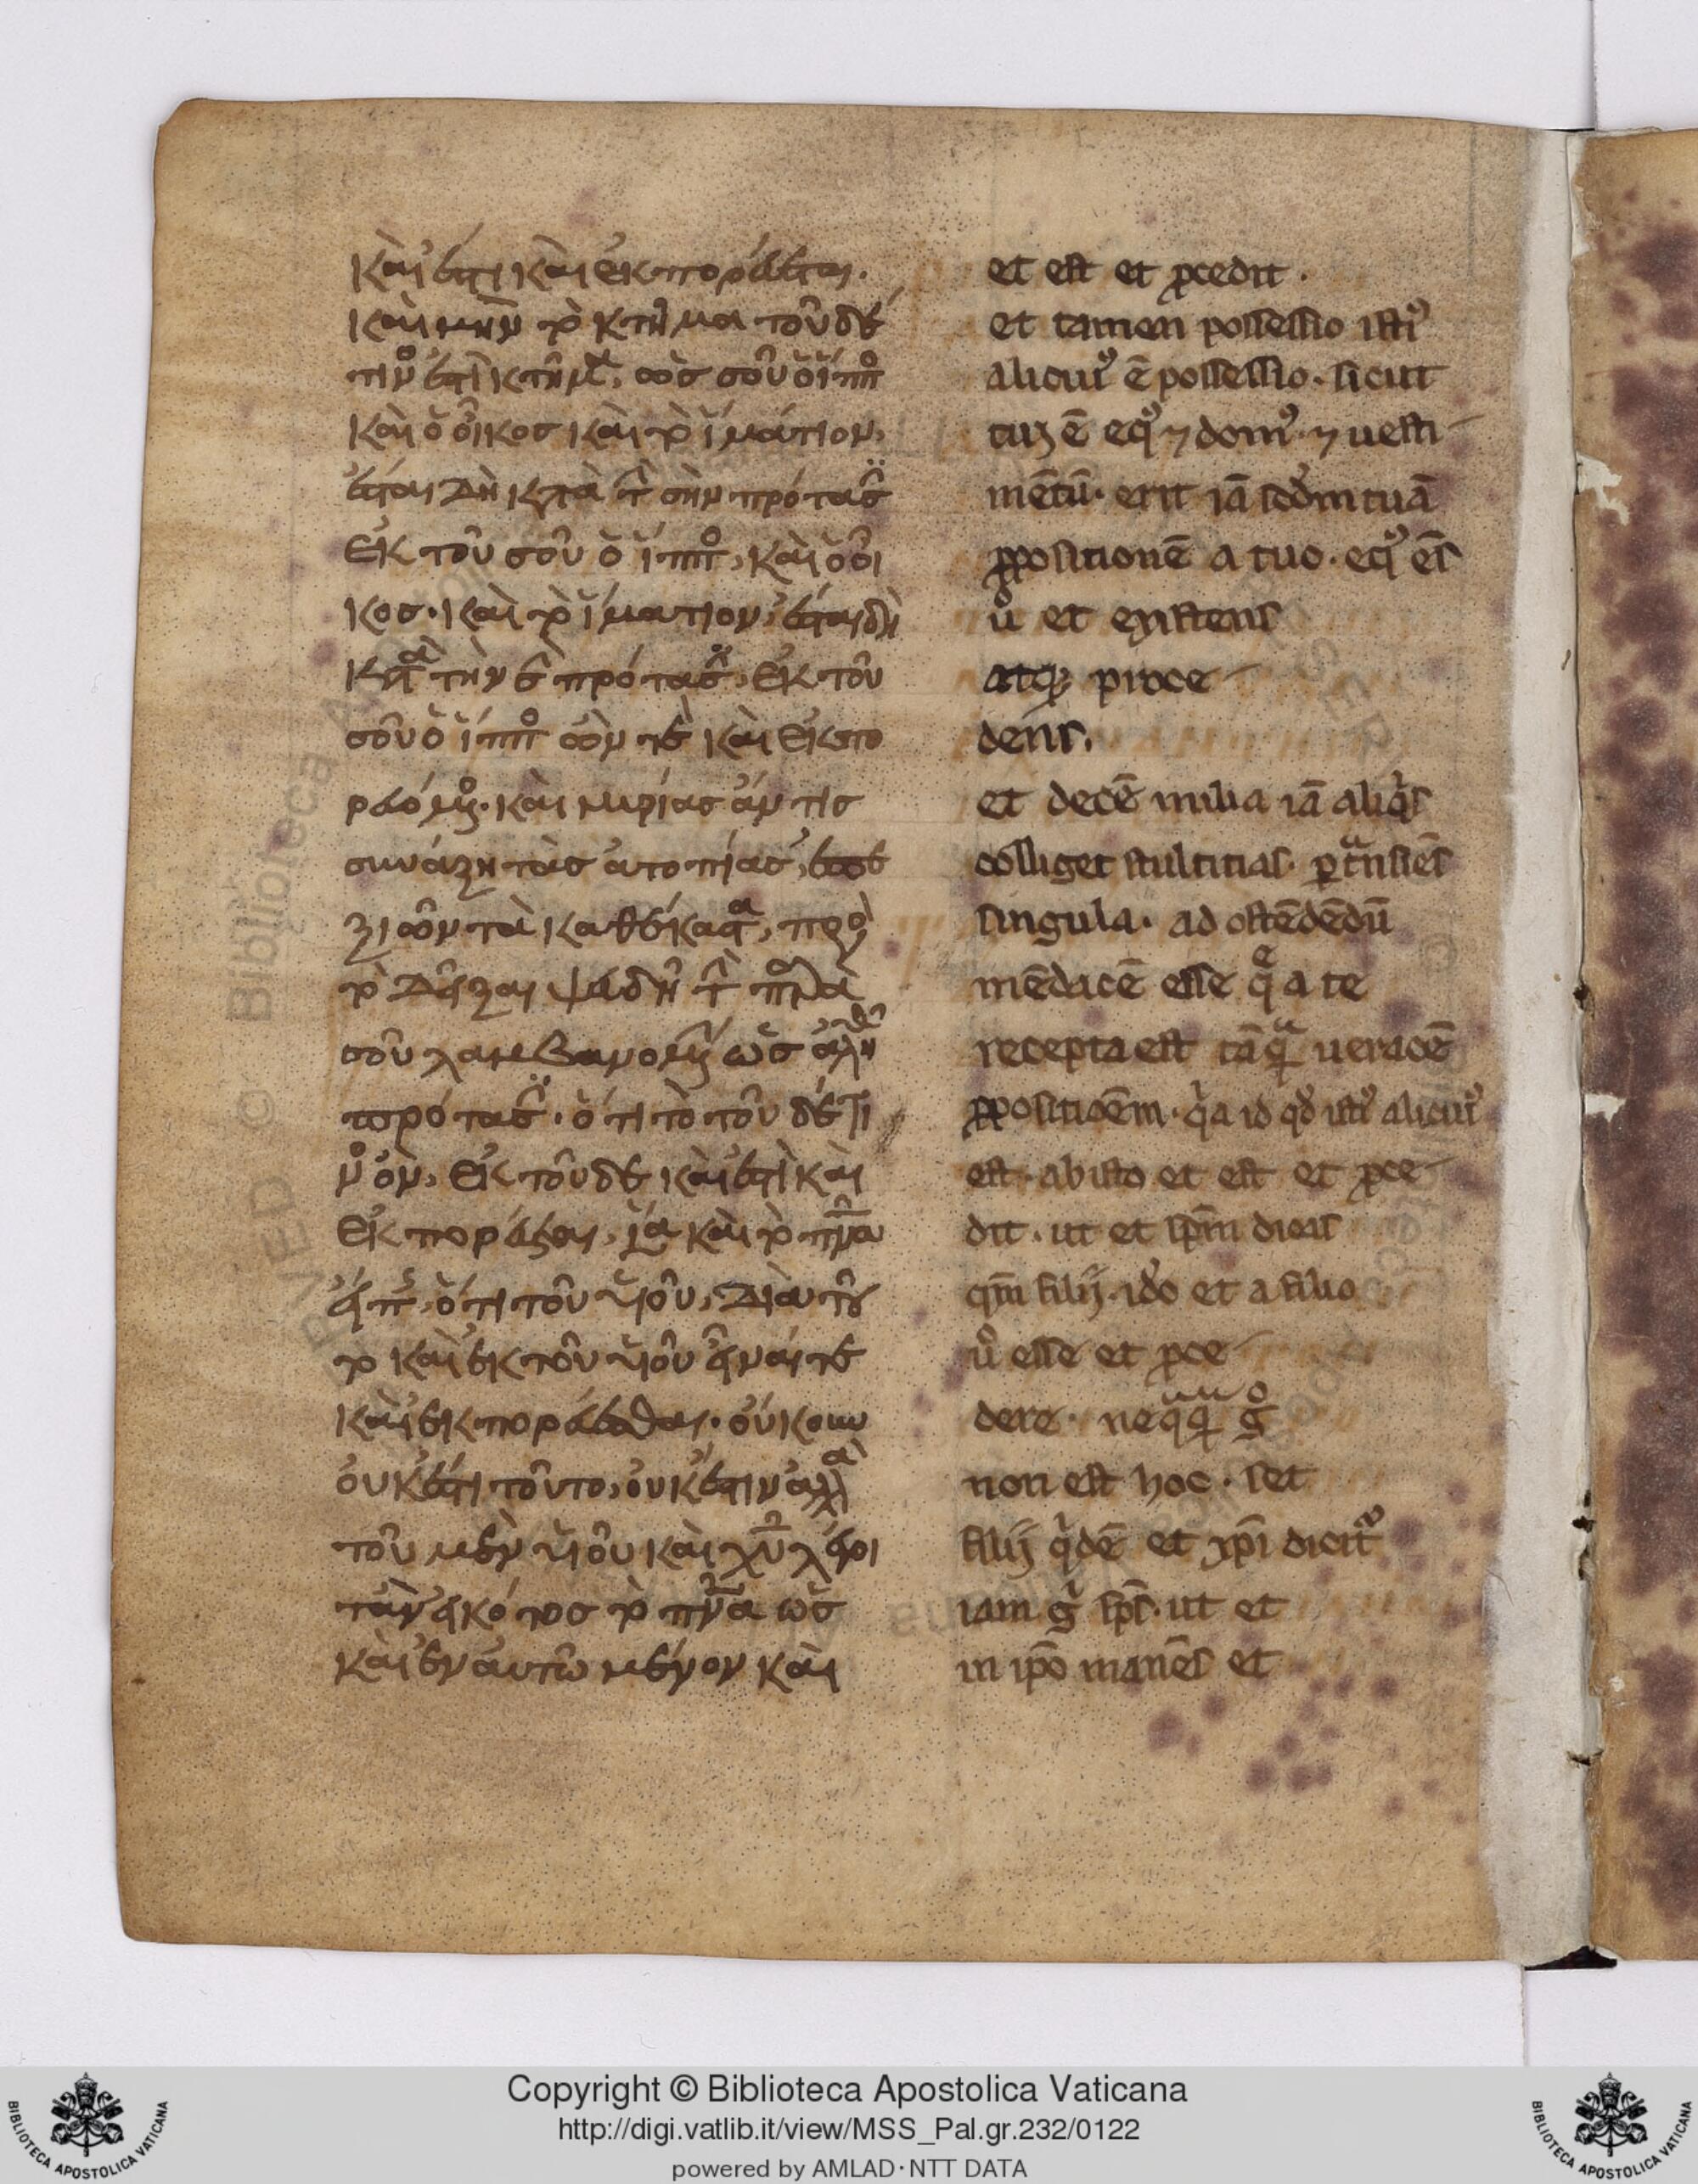 καὶ ἔστι καὶ ἐκπορεύεται.
καὶ μὴν τὸ κτῆμα τοῦδέ
τινος ἐστὶ κτῆμα, ὡς σοῦ ὁ ἵππος
καὶ ὁ οἶκος καὶ τὸ ἱμάτιον,
ἔσται δὴ κατὰ τὴν σὴν πρότασιν
ἐκ τοῦ σοῦ ὁ ἵππος, καὶ ὁ οἶ
κος· καὶ τὸ ἱμάτιον, ἔσται δὴ
κατὰ τὴν σὴν πρότασιν, ἐκ τοῦ
σοῦ ὁ ἵππος ὤν τε καὶ ἐκπο
ρευόμενος· καὶ μυρίας ἄν τις
συνάξῃ τὰς ἀτοπίας, ἐπε
ξιὼν τὰ καθέκαστα, πρὸς
τὸ δεῖξαι ψευδῆ τὴν παρὰ
σοῦ λαμβανομένην ὡς ἀληθῆ
πρότασιν· ὅτι τὸ τοῦδέ τι
νος ὂν, ἐκ τοῦδε καὶ ἐστὶ καὶ
ἐκπορεύεται, ἵνα καὶ τὸ πνεῦμα
εἴπῃς, ὅτι τοῦ υἱοῦ, διὰ τοῦ
το καὶ ἐκ τοῦ υἱοῦ εἶναί τε
καὶ ἐκπορεύεσθαι· οὔκουν
οὐκ ἔστι τοῦτο, οὐκ ἔστιν ἀλλὰ
τοῦ μὲν υἱοῦ καὶ χυ λέγοι
τ' ἂν εἰκότως τὸ πνα ὡς
καὶ ἐν αὐτῷ μένον καὶ
et est et procedit.
et tamen possessio istius
alicuius ē possessio. sicut
tuus ē equus et domus. et uesti
mētū. erit iā scdm tuā
propositionē a tuo. equus ens
uero et existens
atque proce
dens.
et decē milia iā aliquis
colliget stultitias. pertransiens
singula. ad ostēdēdū
mēdacē esse quae a te
recepta est tāquam ueracē
propositioēm. quia id quod istius alicuius
est. ab isto et est et proce
dit. ut et spm dicas
qm filij. ideo et a filio
uero esse et proce
dere. nequaquam ergo
non est hoc. set
filij quidē et xpi dicitur
iam igitur sps. ut et
in ipo manēs et
Copyright © Biblioteca Apostolica Vaticana
http://digi.vatlib.it/view/MSS_Pal.gr.232/0122
powered by AMLAD·NTT DATA
BIBLIOTECA APOSTOLICA VATICANA
BIBLIOTECA APOSTOLICA VATICANA